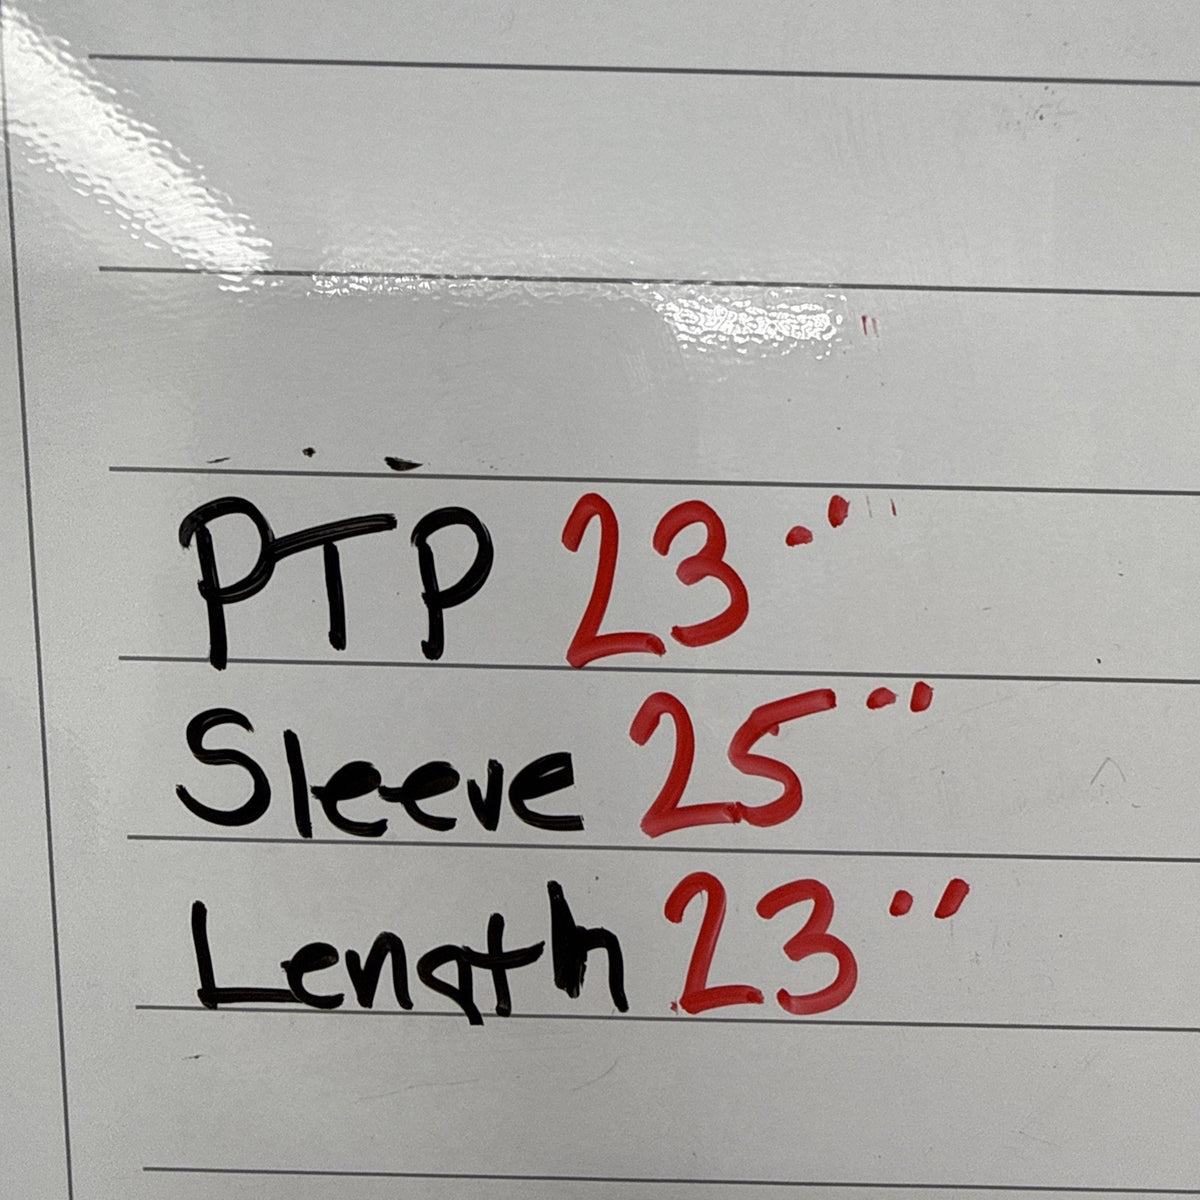 PTP 23"
Sleeve 25"
Length 23"